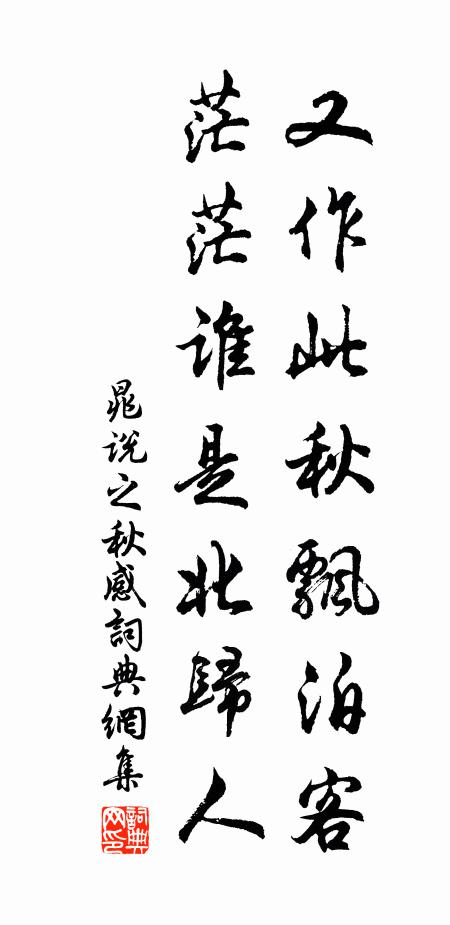 又作此秋飄泊客
茫茫誰是北歸人
晁説之秋感詞典網集
詞典網印